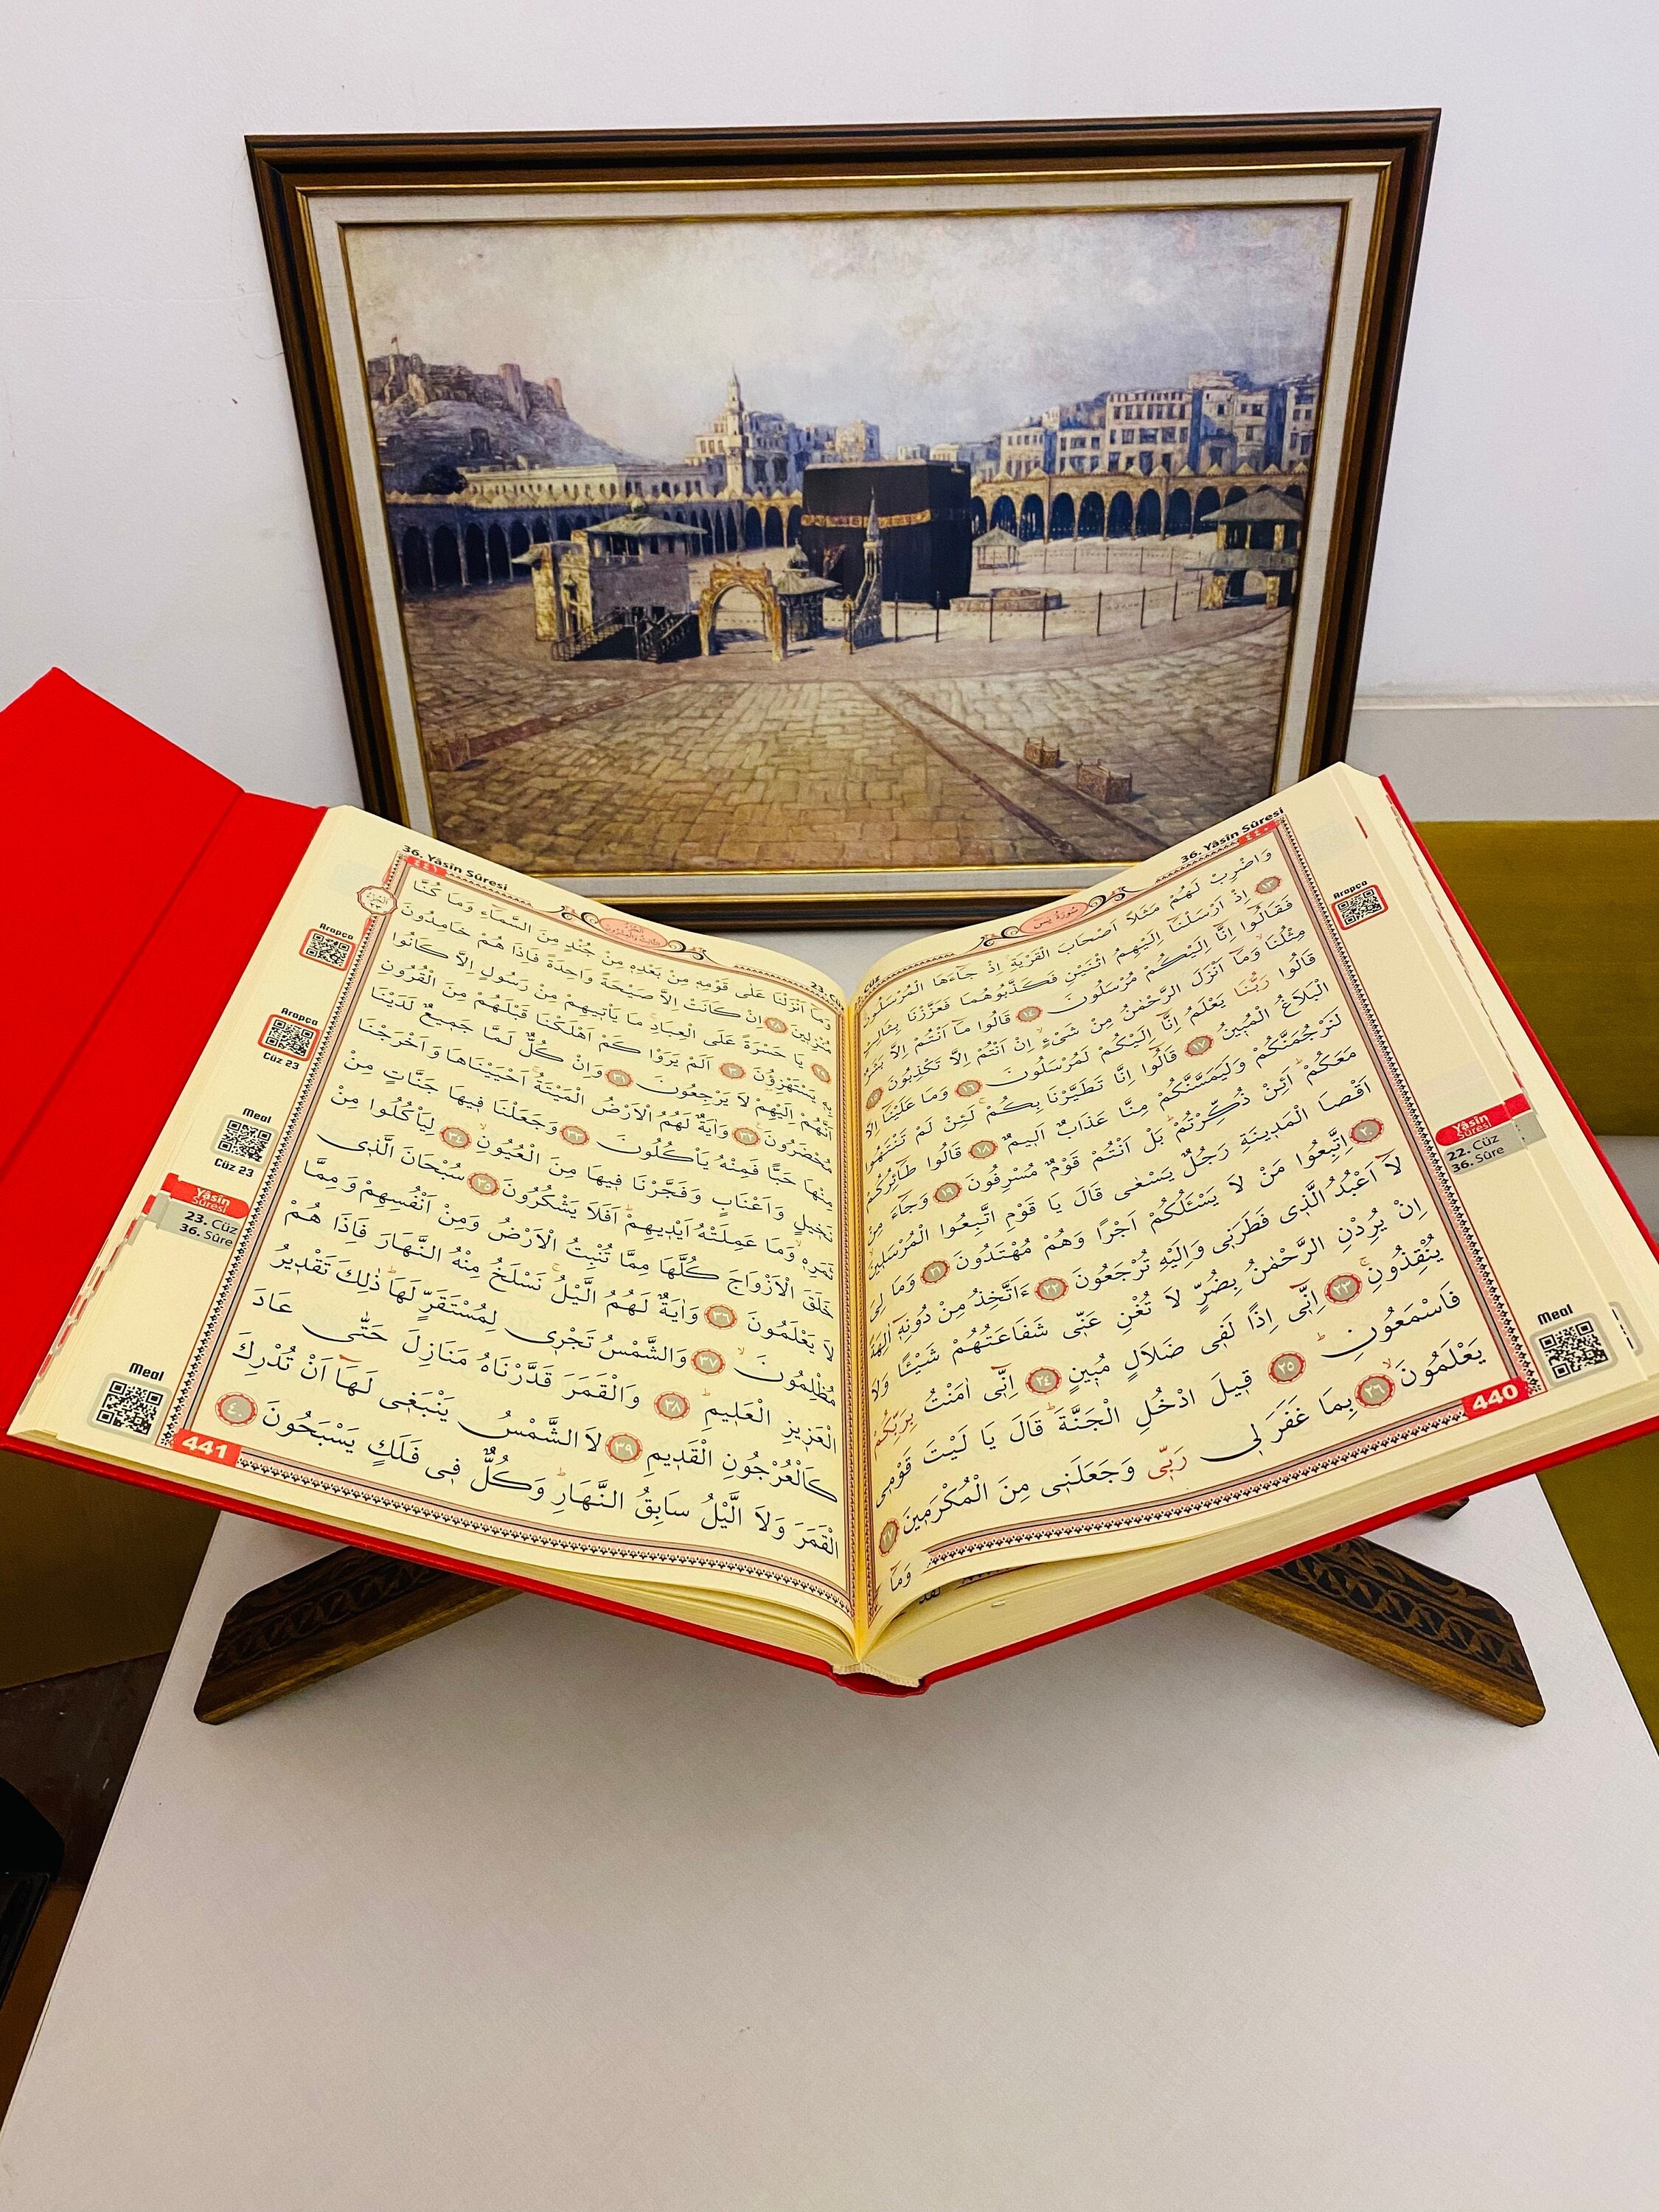 36. Yâsîn Sûresi
٤٤٠
سُورَةُ يٰسٓ
Cüz
وَاضْرِبْ لَهُمْ مَثَلاً اَصْحَابَ الْقَرْيَةِ اِذْ جَٓاءَهَا الْمُرْسَلُونَ
١٣ اِذْ اَرْسَلْنَٓا اِلَيْهِمُ اثْنَيْنِ فَكَذَّبُوهُمَا فَعَزَّزْنَا بِثَالِثٍ
فَقَالُٓوا اِنَّٓا اِلَيْكُمْ مُرْسَلُونَ ١٤ قَالُوا مَٓا اَنْتُمْ اِلاَّ بَشَرٌ
مِثْلُنَا وَمَٓا اَنْزَلَ الرَّحْمٰنُ مِنْ شَيْءٍ اِنْ اَنْتُمْ اِلاَّ تَكْذِبُونَ ١٥
قَالُوا رَبُّنَا يَعْلَمُ اِنَّٓا اِلَيْكُمْ لَمُرْسَلُونَ ١٦ وَمَا عَلَيْنَٓا اِلاَّ
الْبَلاَغُ الْمُبٖينُ ١٧ قَالُٓوا اِنَّا تَطَيَّرْنَا بِكُمْ لَئِنْ لَمْ تَنْتَهُوا
لَنَرْجُمَنَّكُمْ وَلَيَمَسَّنَّكُمْ مِنَّا عَذَابٌ اَلٖيمٌ ١٨ قَالُوا طَٓائِرُكُمْ
مَعَكُمْ اَئِنْ ذُكِّرْتُمْ بَلْ اَنْتُمْ قَوْمٌ مُسْرِفُونَ ١٩ وَجَٓاءَ مِنْ
اَقْصَا الْمَدٖينَةِ رَجُلٌ يَسْعٰى قَالَ يَا قَوْمِ اتَّبِعُوا الْمُرْسَلٖينَ
٢٠ اِتَّبِعُوا مَنْ لاَ يَسْئَلُكُمْ اَجْرًا وَهُمْ مُهْتَدُونَ ٢١ وَمَا لِيَ
لَٓا اَعْبُدُ الَّذٖى فَطَرَنٖى وَاِلَيْهِ تُرْجَعُونَ ٢٢ ءَاَتَّخِذُ مِنْ دُونِهٖٓ اٰلِهَةً
اِنْ يُرِدْنِ الرَّحْمٰنُ بِضُرٍّ لاَ تُغْنِ عَنّٖى شَفَاعَتُهُمْ شَيْئًا وَلاَ
يُنْقِذُونِ ٢٣ اِنّٖٓى اِذًا لَفٖى ضَلاَلٍ مُبٖينٍ ٢٤ اِنّٖٓى اٰمَنْتُ بِرَبِّكُمْ
فَاسْمَعُونِ ٢٥ قٖيلَ ادْخُلِ الْجَنَّةَ قَالَ يَا لَيْتَ قَوْمٖى
يَعْلَمُونَ ٢٦ بِمَا غَفَرَ لٖى رَبّٖى وَجَعَلَنٖى مِنَ الْمُكْرَمٖينَ ٢٧
وَمَٓا
440
Arapça
Yâsîn
Sûresi
22. Cüz
36. Sûre
Meal
36. Yâsîn Sûresi
٤٤١
23. Cüz
وَمَٓا اَنْزَلْنَا عَلٰى قَوْمِهٖ مِنْ بَعْدِهٖ مِنْ جُنْدٍ مِنَ السَّمَٓاءِ وَمَا كُنَّا
مُنْزِلٖينَ ٢٨ اِنْ كَانَتْ اِلاَّ صَيْحَةً وَاحِدَةً فَاِذَا هُمْ خَامِدُونَ
٢٩ يَا حَسْرَةً عَلَى الْعِبَادِ مَا يَاْتٖيهِمْ مِنْ رَسُولٍ اِلاَّ كَانُوا
بِهٖ يَسْتَهْزِؤُنَ ٣٠ اَلَمْ يَرَوْا كَمْ اَهْلَكْنَا قَبْلَهُمْ مِنَ الْقُرُونِ
اَنَّهُمْ اِلَيْهِمْ لاَ يَرْجِعُونَ ٣١ وَاِنْ كُلٌّ لَمَّا جَمٖيعٌ لَدَيْنَا
مُحْضَرُونَ ٣٢ وَاٰيَةٌ لَهُمُ الْاَرْضُ الْمَيْتَةُ اَحْيَيْنَاهَا وَاَخْرَجْنَا
مِنْهَا حَبًّا فَمِنْهُ يَاْكُلُونَ ٣٣ وَجَعَلْنَا فٖيهَا جَنَّاتٍ مِنْ
نَخٖيلٍ وَاَعْنَابٍ وَفَجَّرْنَا فٖيهَا مِنَ الْعُيُونِ ٣٤ لِيَاْكُلُوا مِنْ
ثَمَرِهٖ وَمَا عَمِلَتْهُ اَيْدٖيهِمْ اَفَلاَ يَشْكُرُونَ ٣٥ سُبْحَانَ الَّذٖى
خَلَقَ الْاَزْوَاجَ كُلَّهَا مِمَّا تُنْبِتُ الْاَرْضُ وَمِنْ اَنْفُسِهِمْ وَمِمَّا
لاَ يَعْلَمُونَ ٣٦ وَاٰيَةٌ لَهُمُ الَّيْلُ نَسْلَخُ مِنْهُ النَّهَارَ فَاِذَا هُمْ
مُظْلِمُونَ ٣٧ وَالشَّمْسُ تَجْرٖى لِمُسْتَقَرٍّ لَهَا ذٰلِكَ تَقْدٖيرُ
الْعَزٖيزِ الْعَلٖيمِ ٣٨ وَالْقَمَرَ قَدَّرْنَاهُ مَنَازِلَ حَتّٰى عَادَ
كَالْعُرْجُونِ الْقَدٖيمِ ٣٩ لاَ الشَّمْسُ يَنْبَغٖى لَهَٓا اَنْ تُدْرِكَ
الْقَمَرَ وَلاَ الَّيْلُ سَابِقُ النَّهَارِ وَكُلٌّ فٖى فَلَكٍ يَسْبَحُونَ ٤٠
441
Arapça
Arapça
Cüz 23
Meal
Cüz 23
Yâsîn
Sûresi
23. Cüz
36. Sûre
Meal